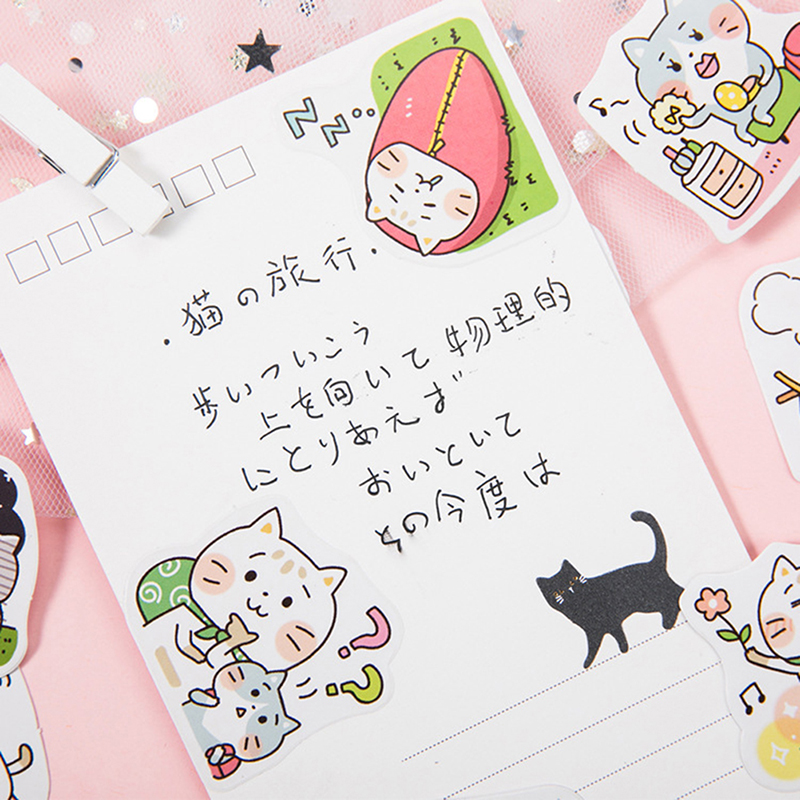 ・猫の旅行・
歩いついこう
上を向いて物理的
にとりあえず
おいといて
その今度は